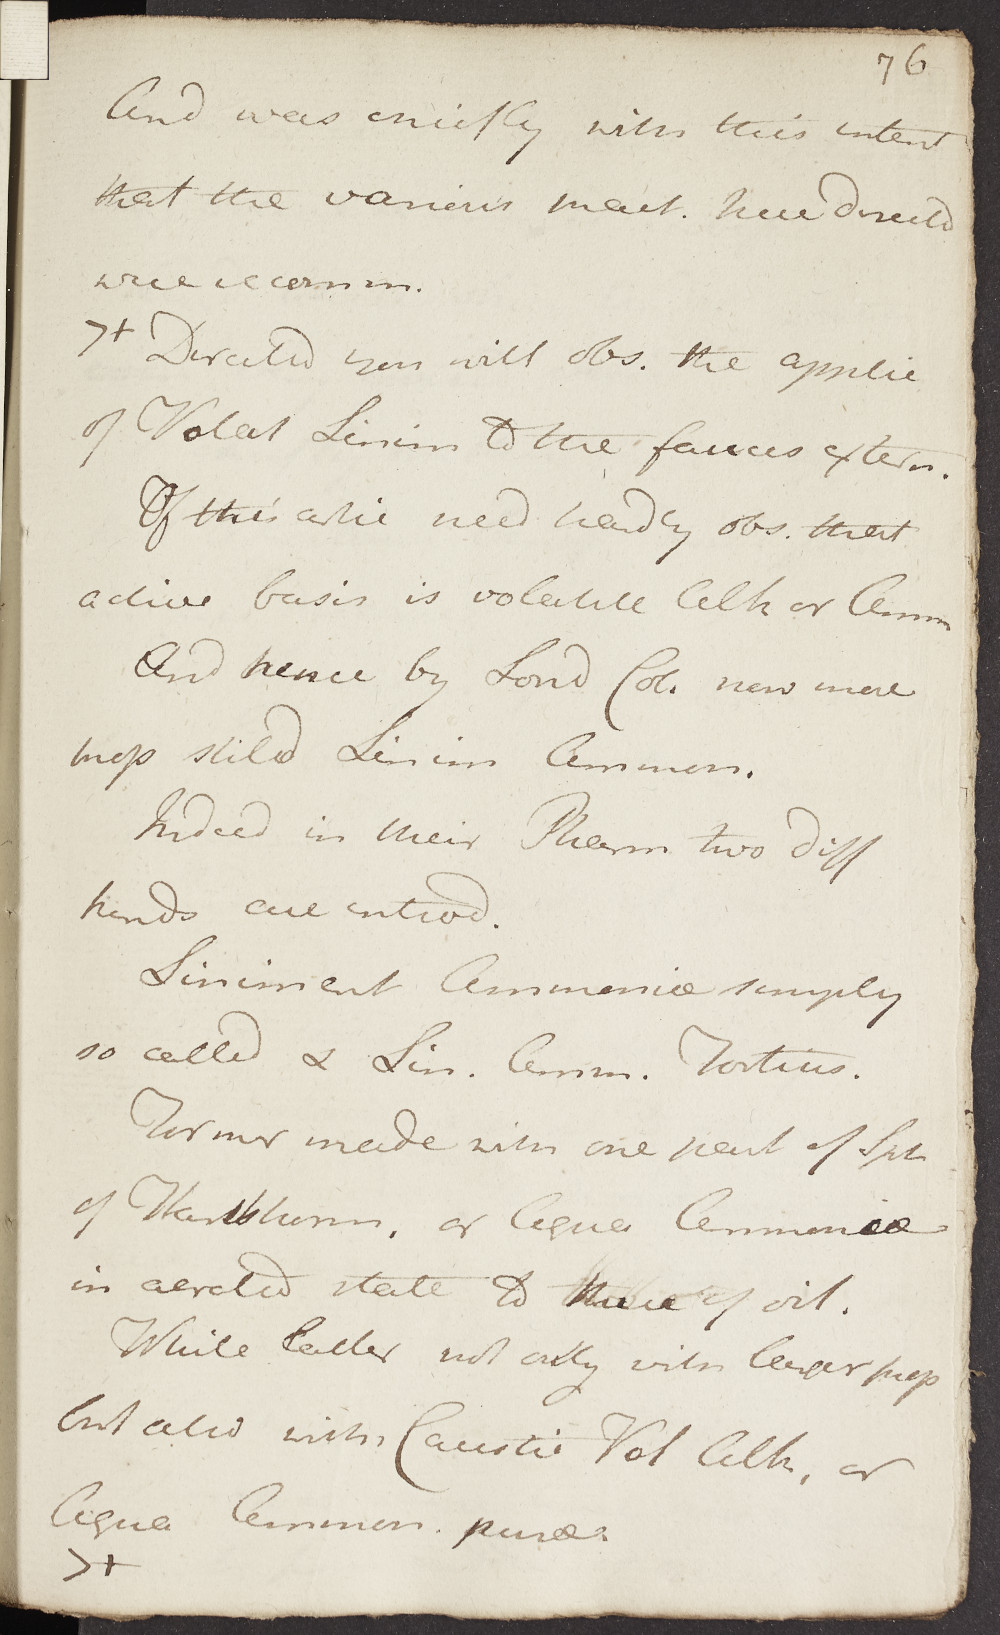 76
And was chiefly with this intent
that the various meas. here directed
were recomm.
>+ Directed you will obs. the applic
of Volat Linim to the fauces extern.
Of this artic need hardly obs. that
active basis is volatile Alk or Amm
And hence by Lond Col. now more
prop stiled Linim Ammon.
Indeed in their Pharm two diff
kinds are introd.
Liniment Ammoniæ simply
so called & Lin. Amm. Fortius.
Former made with one part of Spt
of Hartshorn, or Aqua Ammoniæ
in aerated state to three of oil.
While latter not only with larger prop
but also with Caustic Vol Alk, or
Aqua Ammon. puræ.
>+